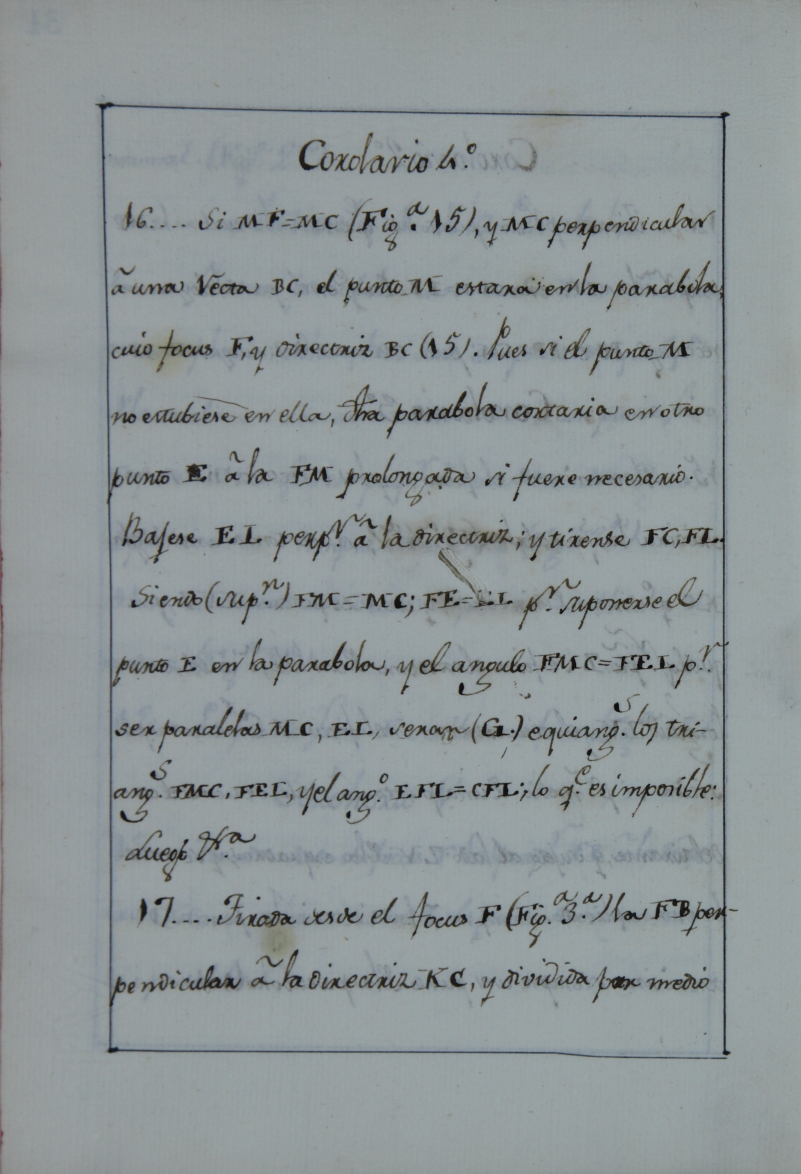 Corolario 4.º
16.... Si MF=MC (Fig.ª 15), y MC perpendicular
â una recta BC, el punto M estara en la parabola,
cuio focus F, y directriz BC (15). Pues si el punto M
no estubiese en ella, dha parabola cortaria en otro
punto E â la FM prolongada si fuere necesario.
Bajese EL perp.r â la directriz; y tirense FC, FL.
Siendo (sup.n) FM=MC; FE=EL p.r suponerse el
punto E en la parabola, y el angulo FMC=FEL p.r
ser paralelas MC, EL, seran (G.) equiang.s los tri-
ang.s FMC, FEL, y el ang.º EFL=CFL; lo q.e es imposible:
Luego &.a
17.... Tirada desde el focus F (Fig.ª 3.ª) la FB per-
pendicular â la directriz KC, y dividida por medio